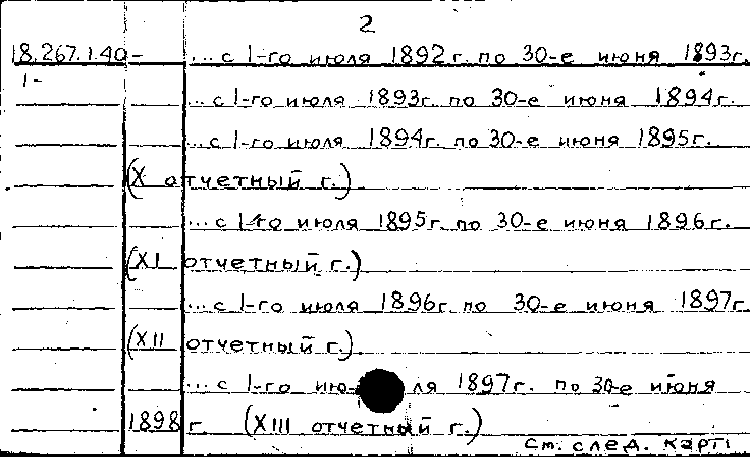 2
18.267.1.40- ... с 1-го июля 1892 г. по 30-е июня 1893г.
1- ... с 1-го июля 1893г. по 30-е июня 1894г.
... с 1-го июля 1894г. по 30-е июня 1895г.
(X отчетный г.)
... с 1-го июля 1895г. по 30-е июня 1896г.
(XI отчетный г.)
... с 1-го июля 1896г. по 30-е июня 1897г
(XII отчетный г.)
... с 1-го ию-ля 1897г. по 30-е июня
1898 г. (XIII отчетный г.)
См. след. карт